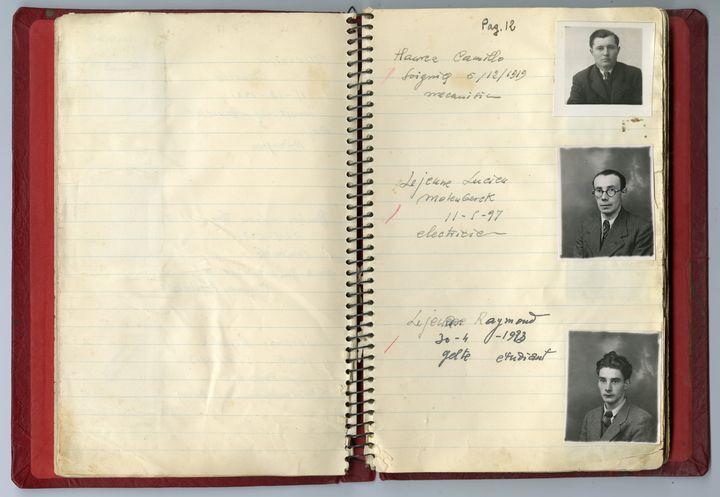 Pag. 12
Camillo
Soignies 6/12/1919
mecanicien
Lejeune Lucien
Molenbeek
11-5-97
electricien
Lejeune Raymond
30-4-1923
etudiant